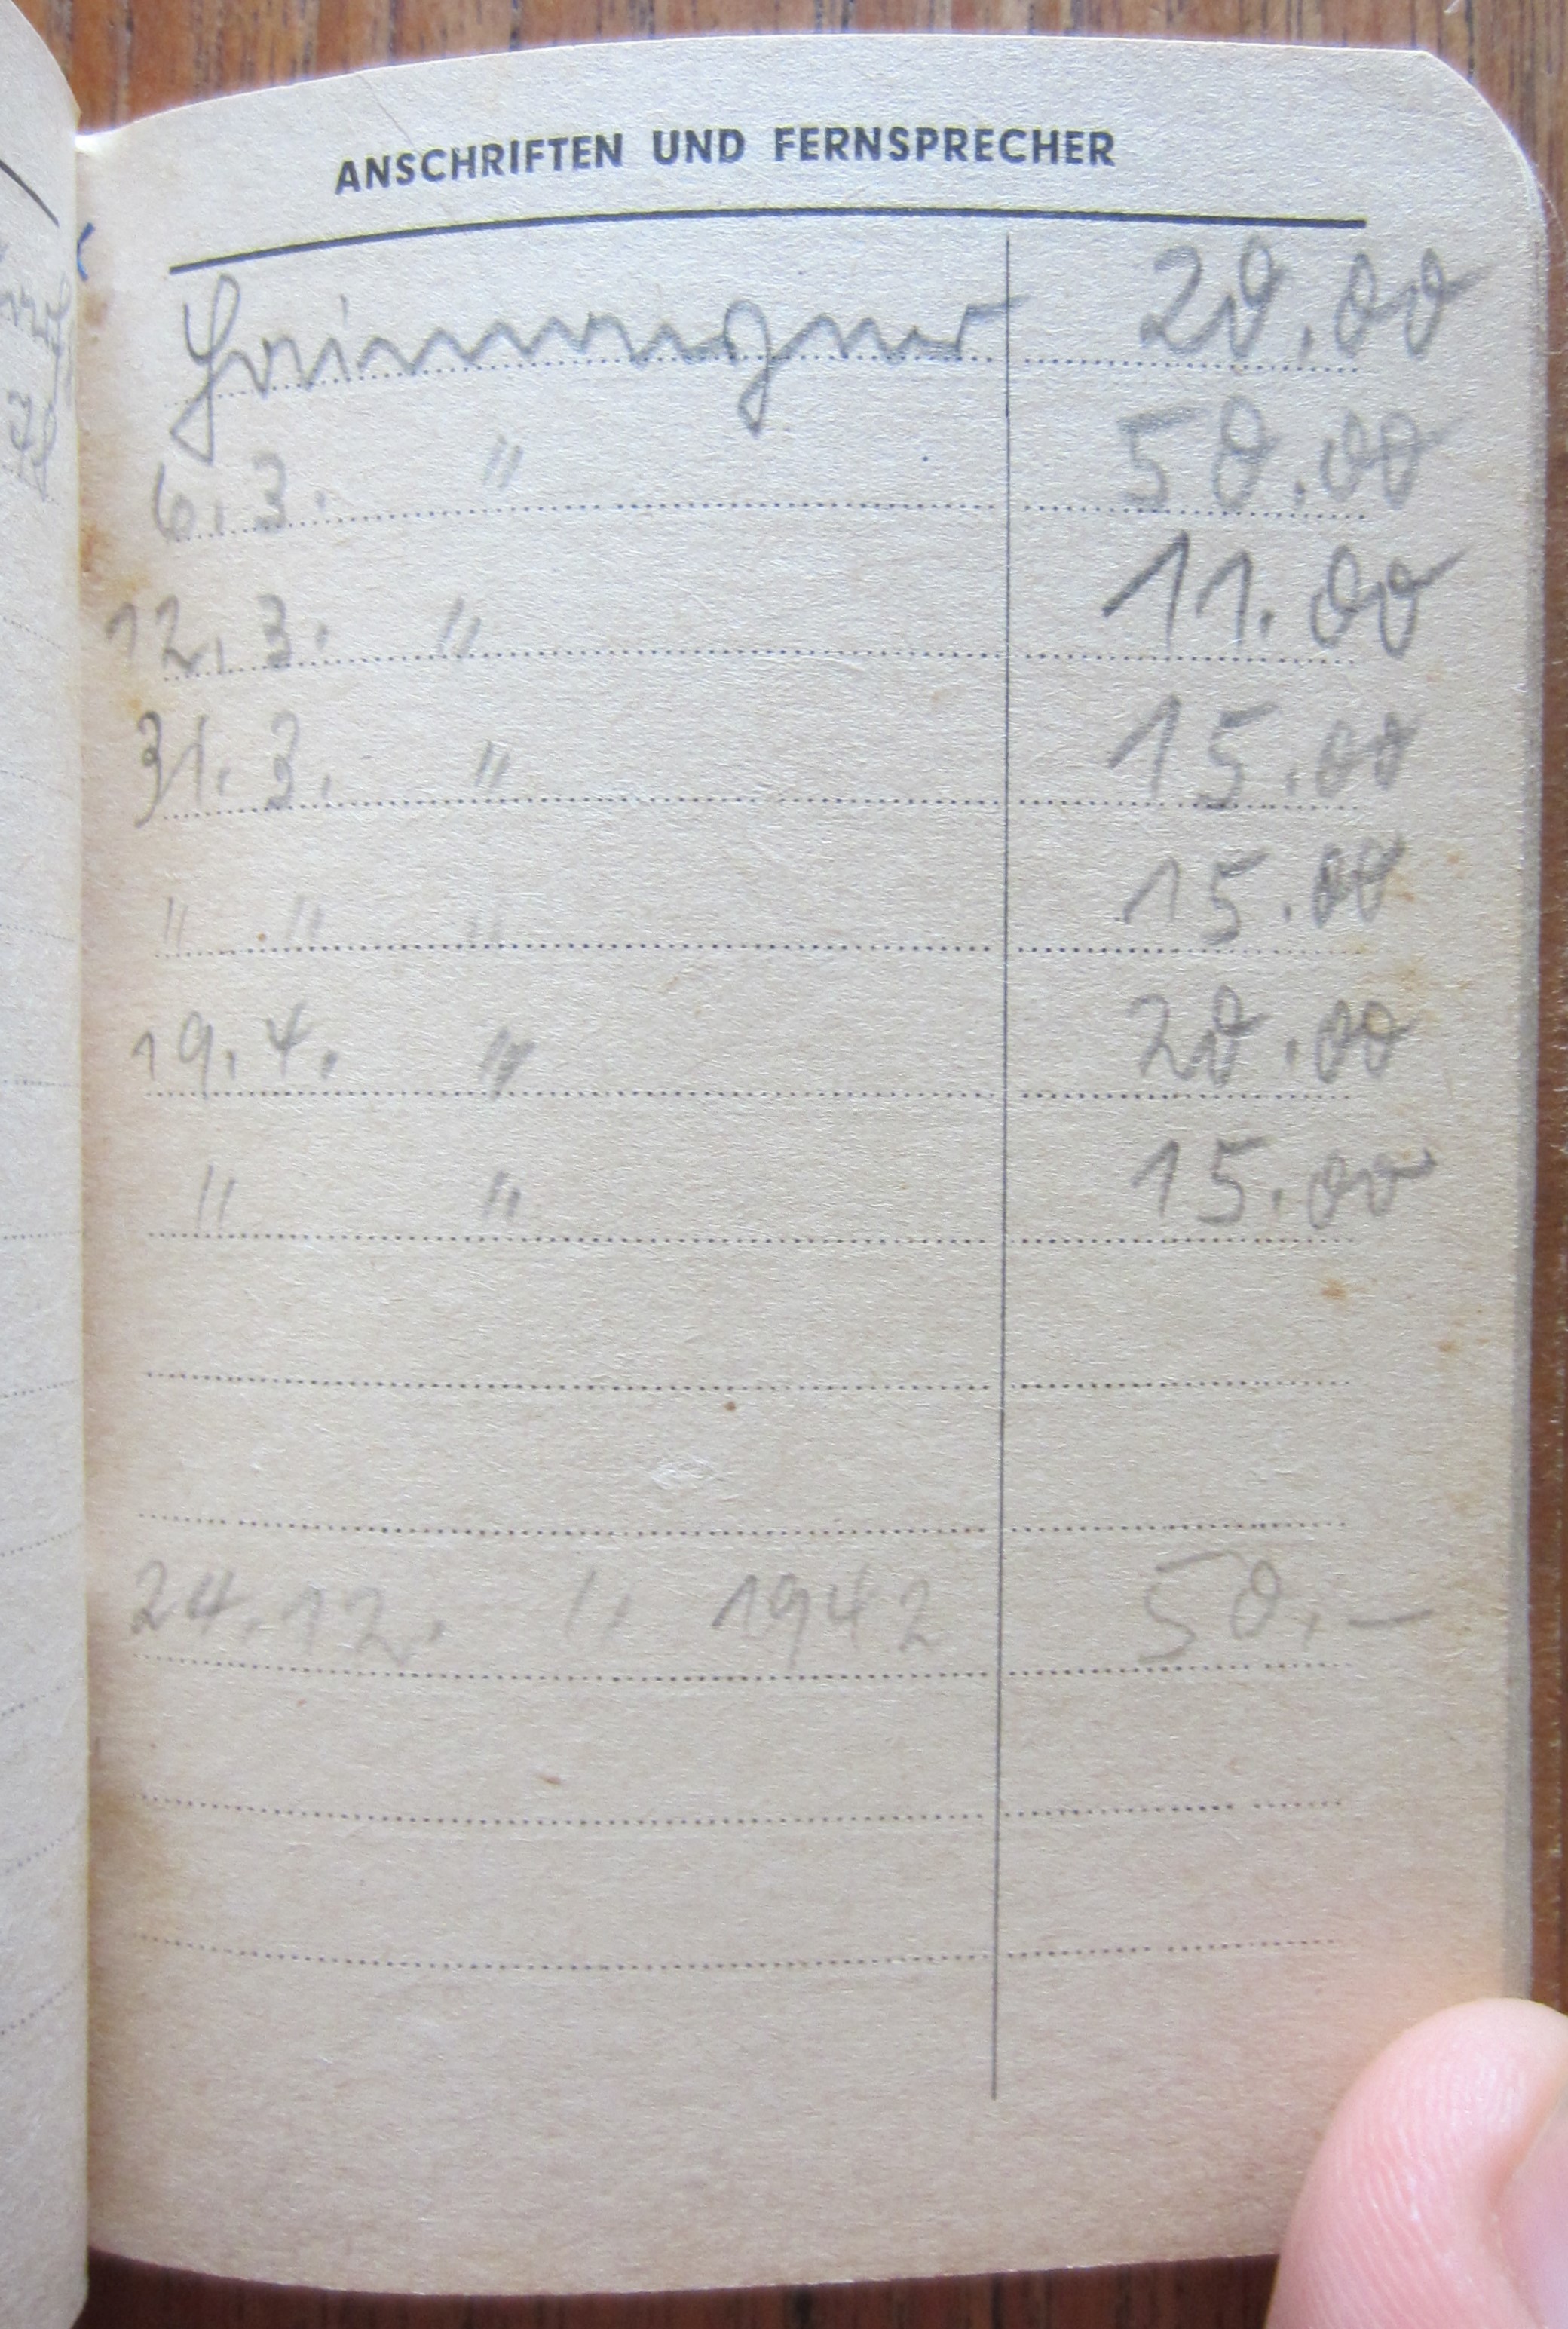 ANSCHRIFTEN UND FERNSPRECHER
20.00
6. 3. " 50.00
12. 3. " 11.00
31. 3. " 15.00
" " " 15.00
19. 4. " 20.00
" " 15.00
24. 12. " 1942 50.-